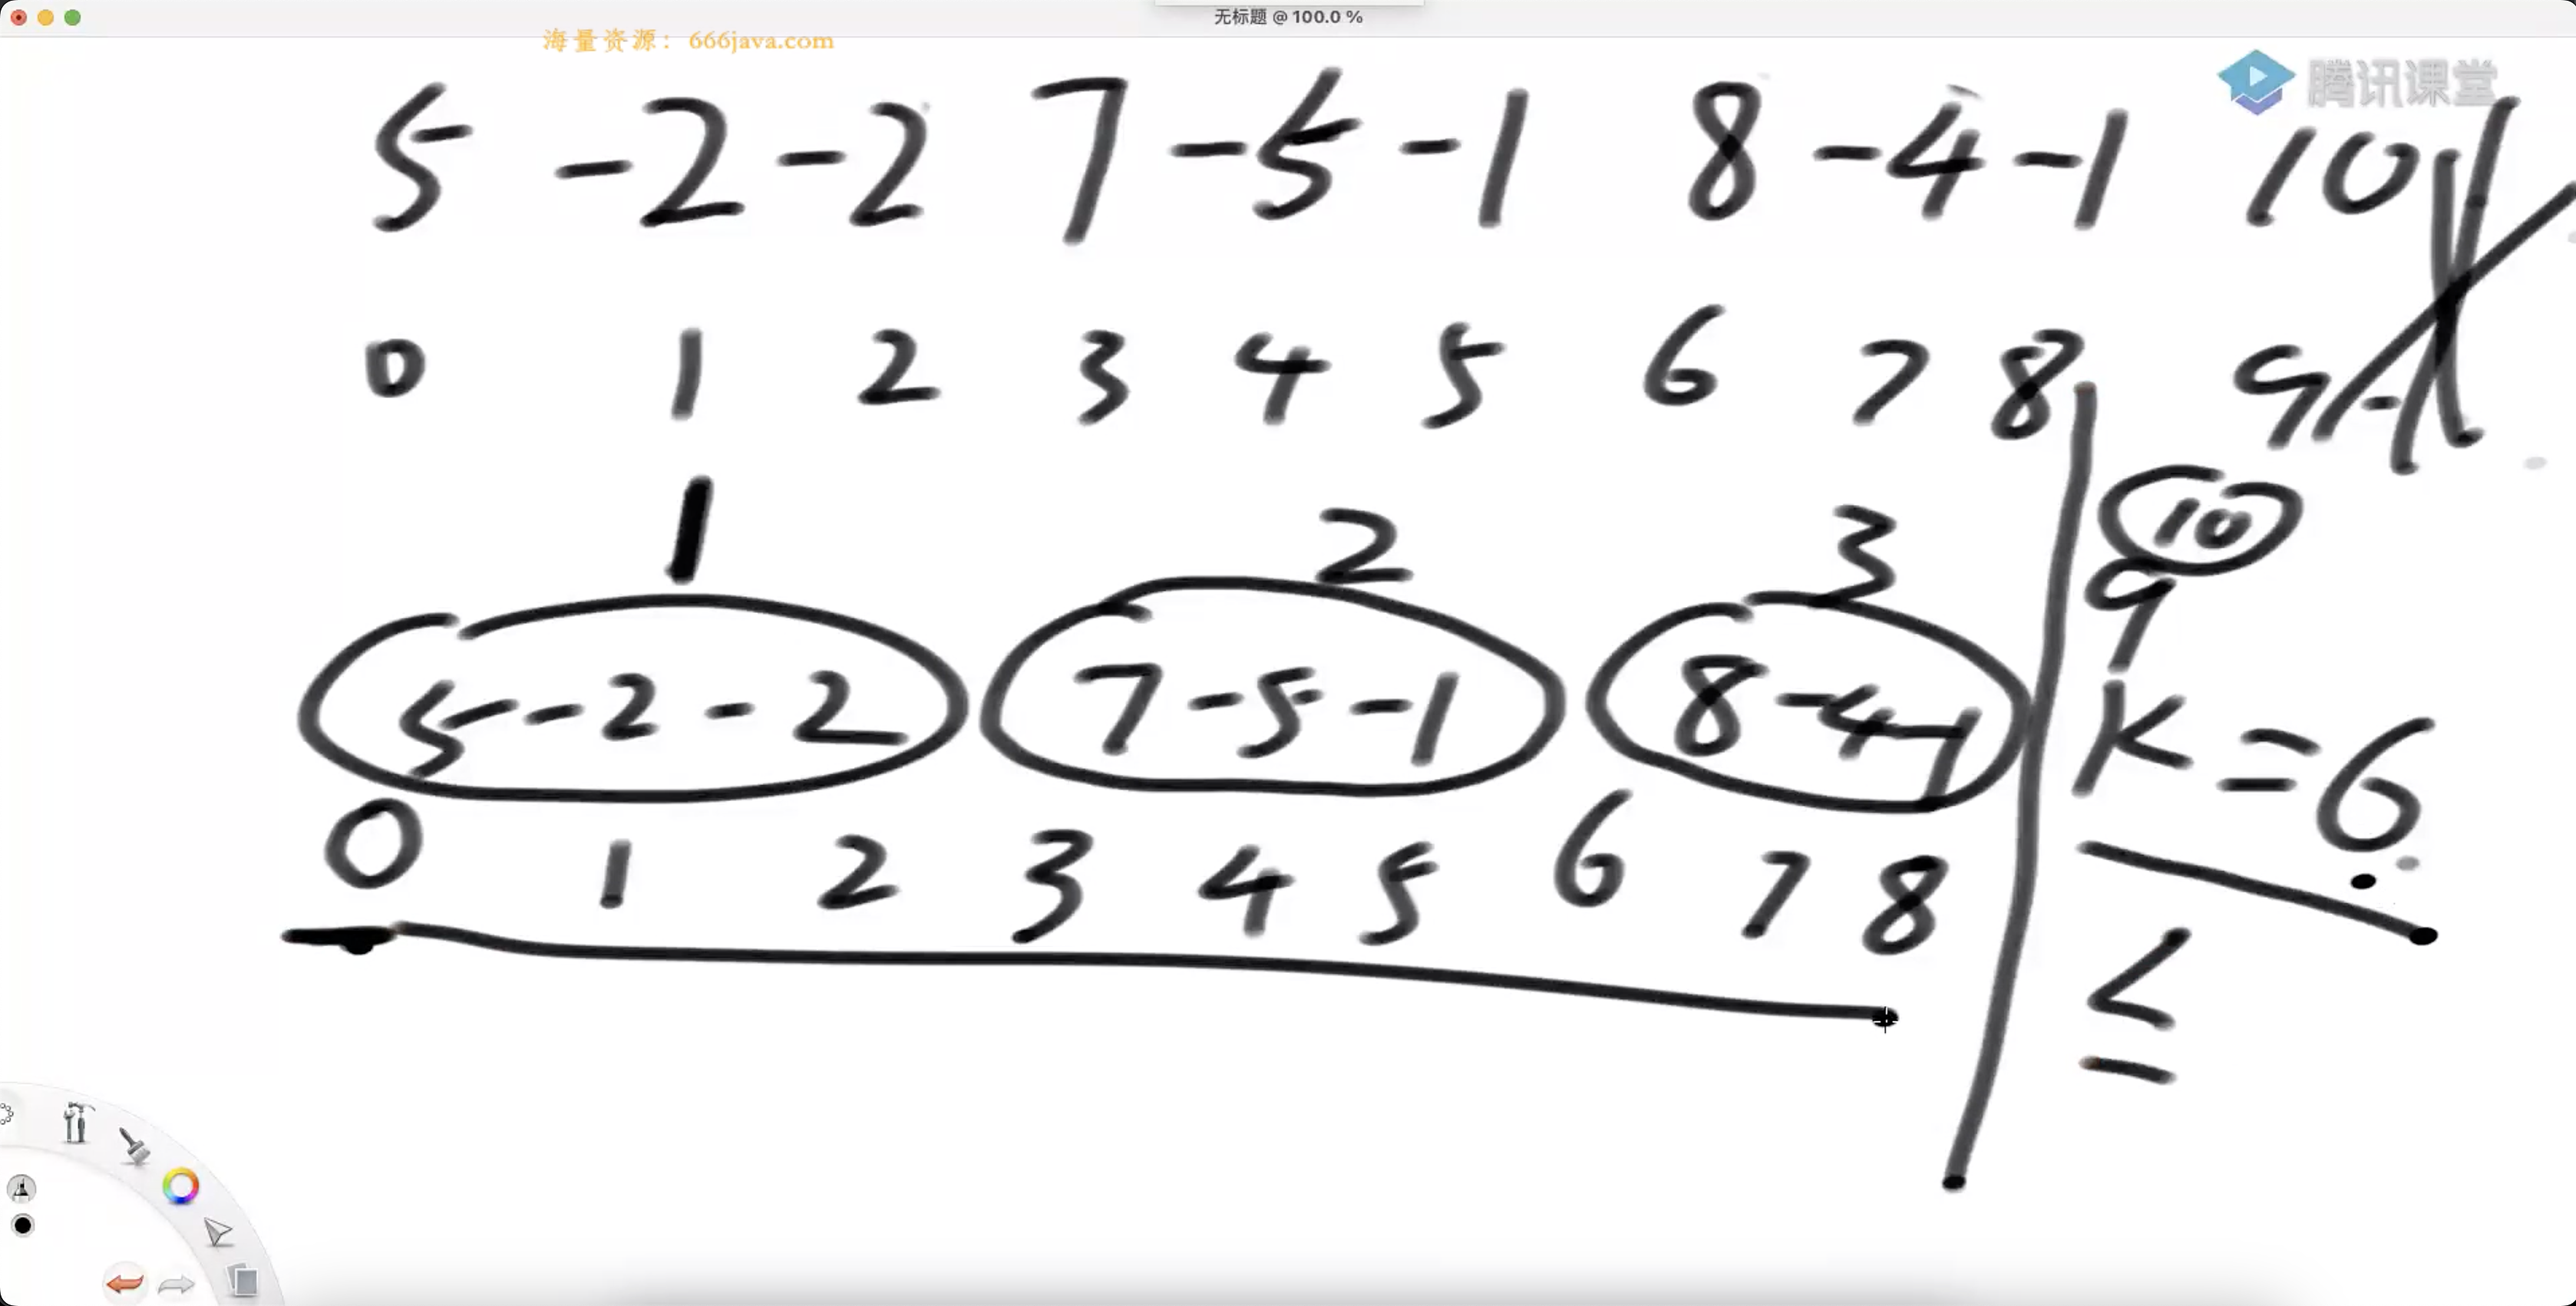 无标题 @ 100.0 %
海量资源：666java.com
腾讯课堂
5 -2 -2 7 -5 -1 8 -4 -1 10
0 1 2 3 4 5 6 7 8 9
1 2 3 10
9
5 -2 -2 7 -5 -1 8 -4 -1 K = 6
0 1 2 3 4 5 6 7 8
≤